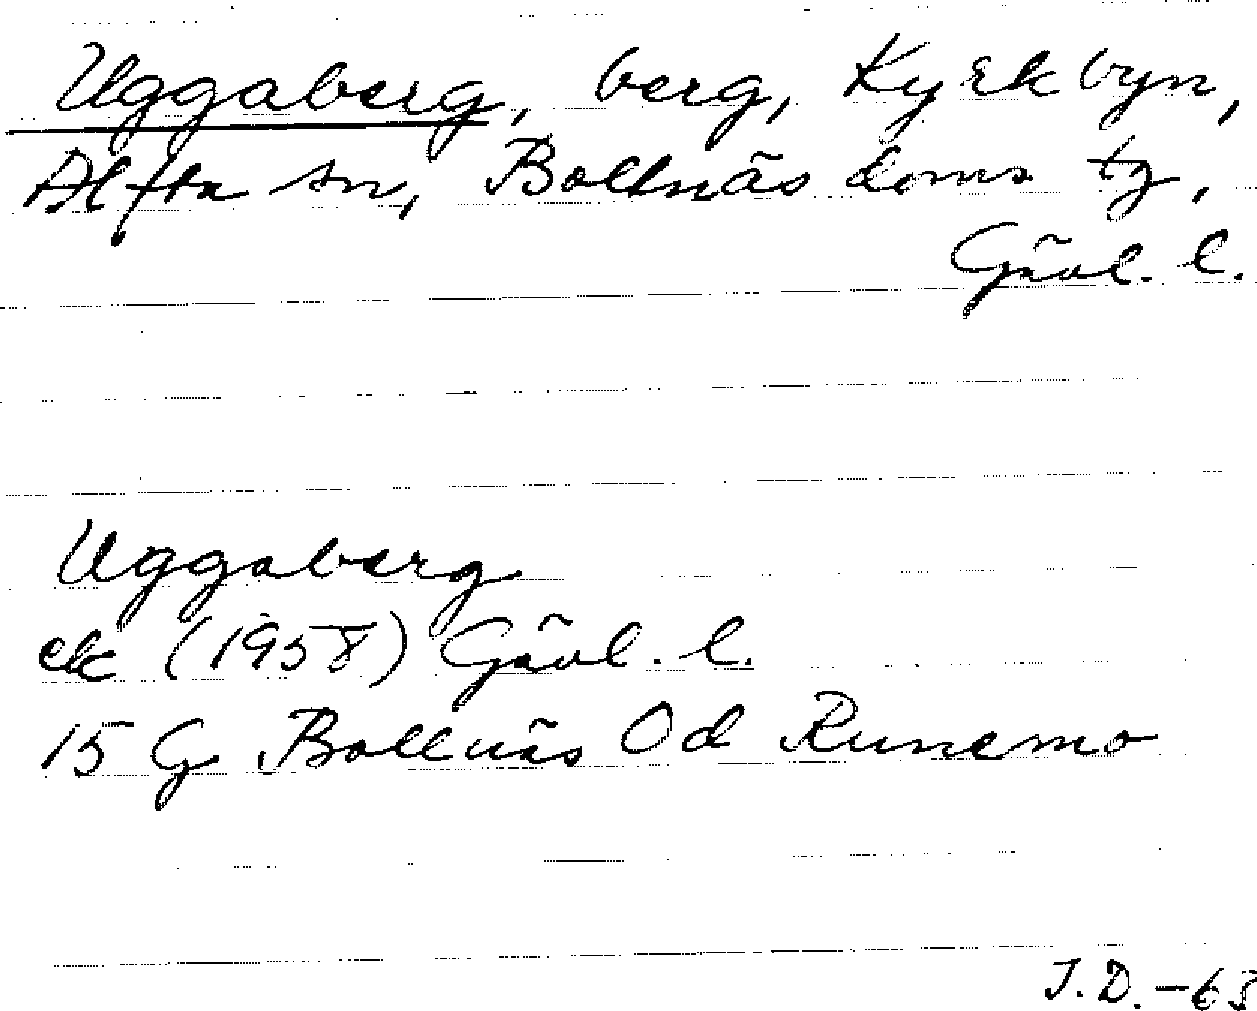 Uggaberg, berg, Kyrkbyn,
Alfta sn, Bollnäs doms tg,
Gävl. l.
Uggaberg
ek (1958) Gävl. l.
15 G Bollnäs Od Runemo
J.D. -63